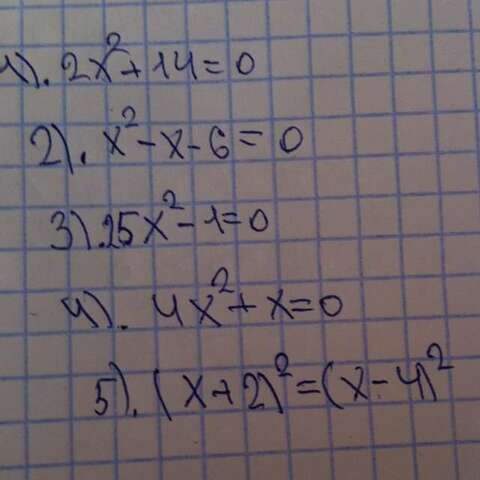 1). 2x²+14=0
2). x²-x-6=0
3). 25x²-1=0
4). 4x²+x=0
5). (x+2)²=(x-4)²